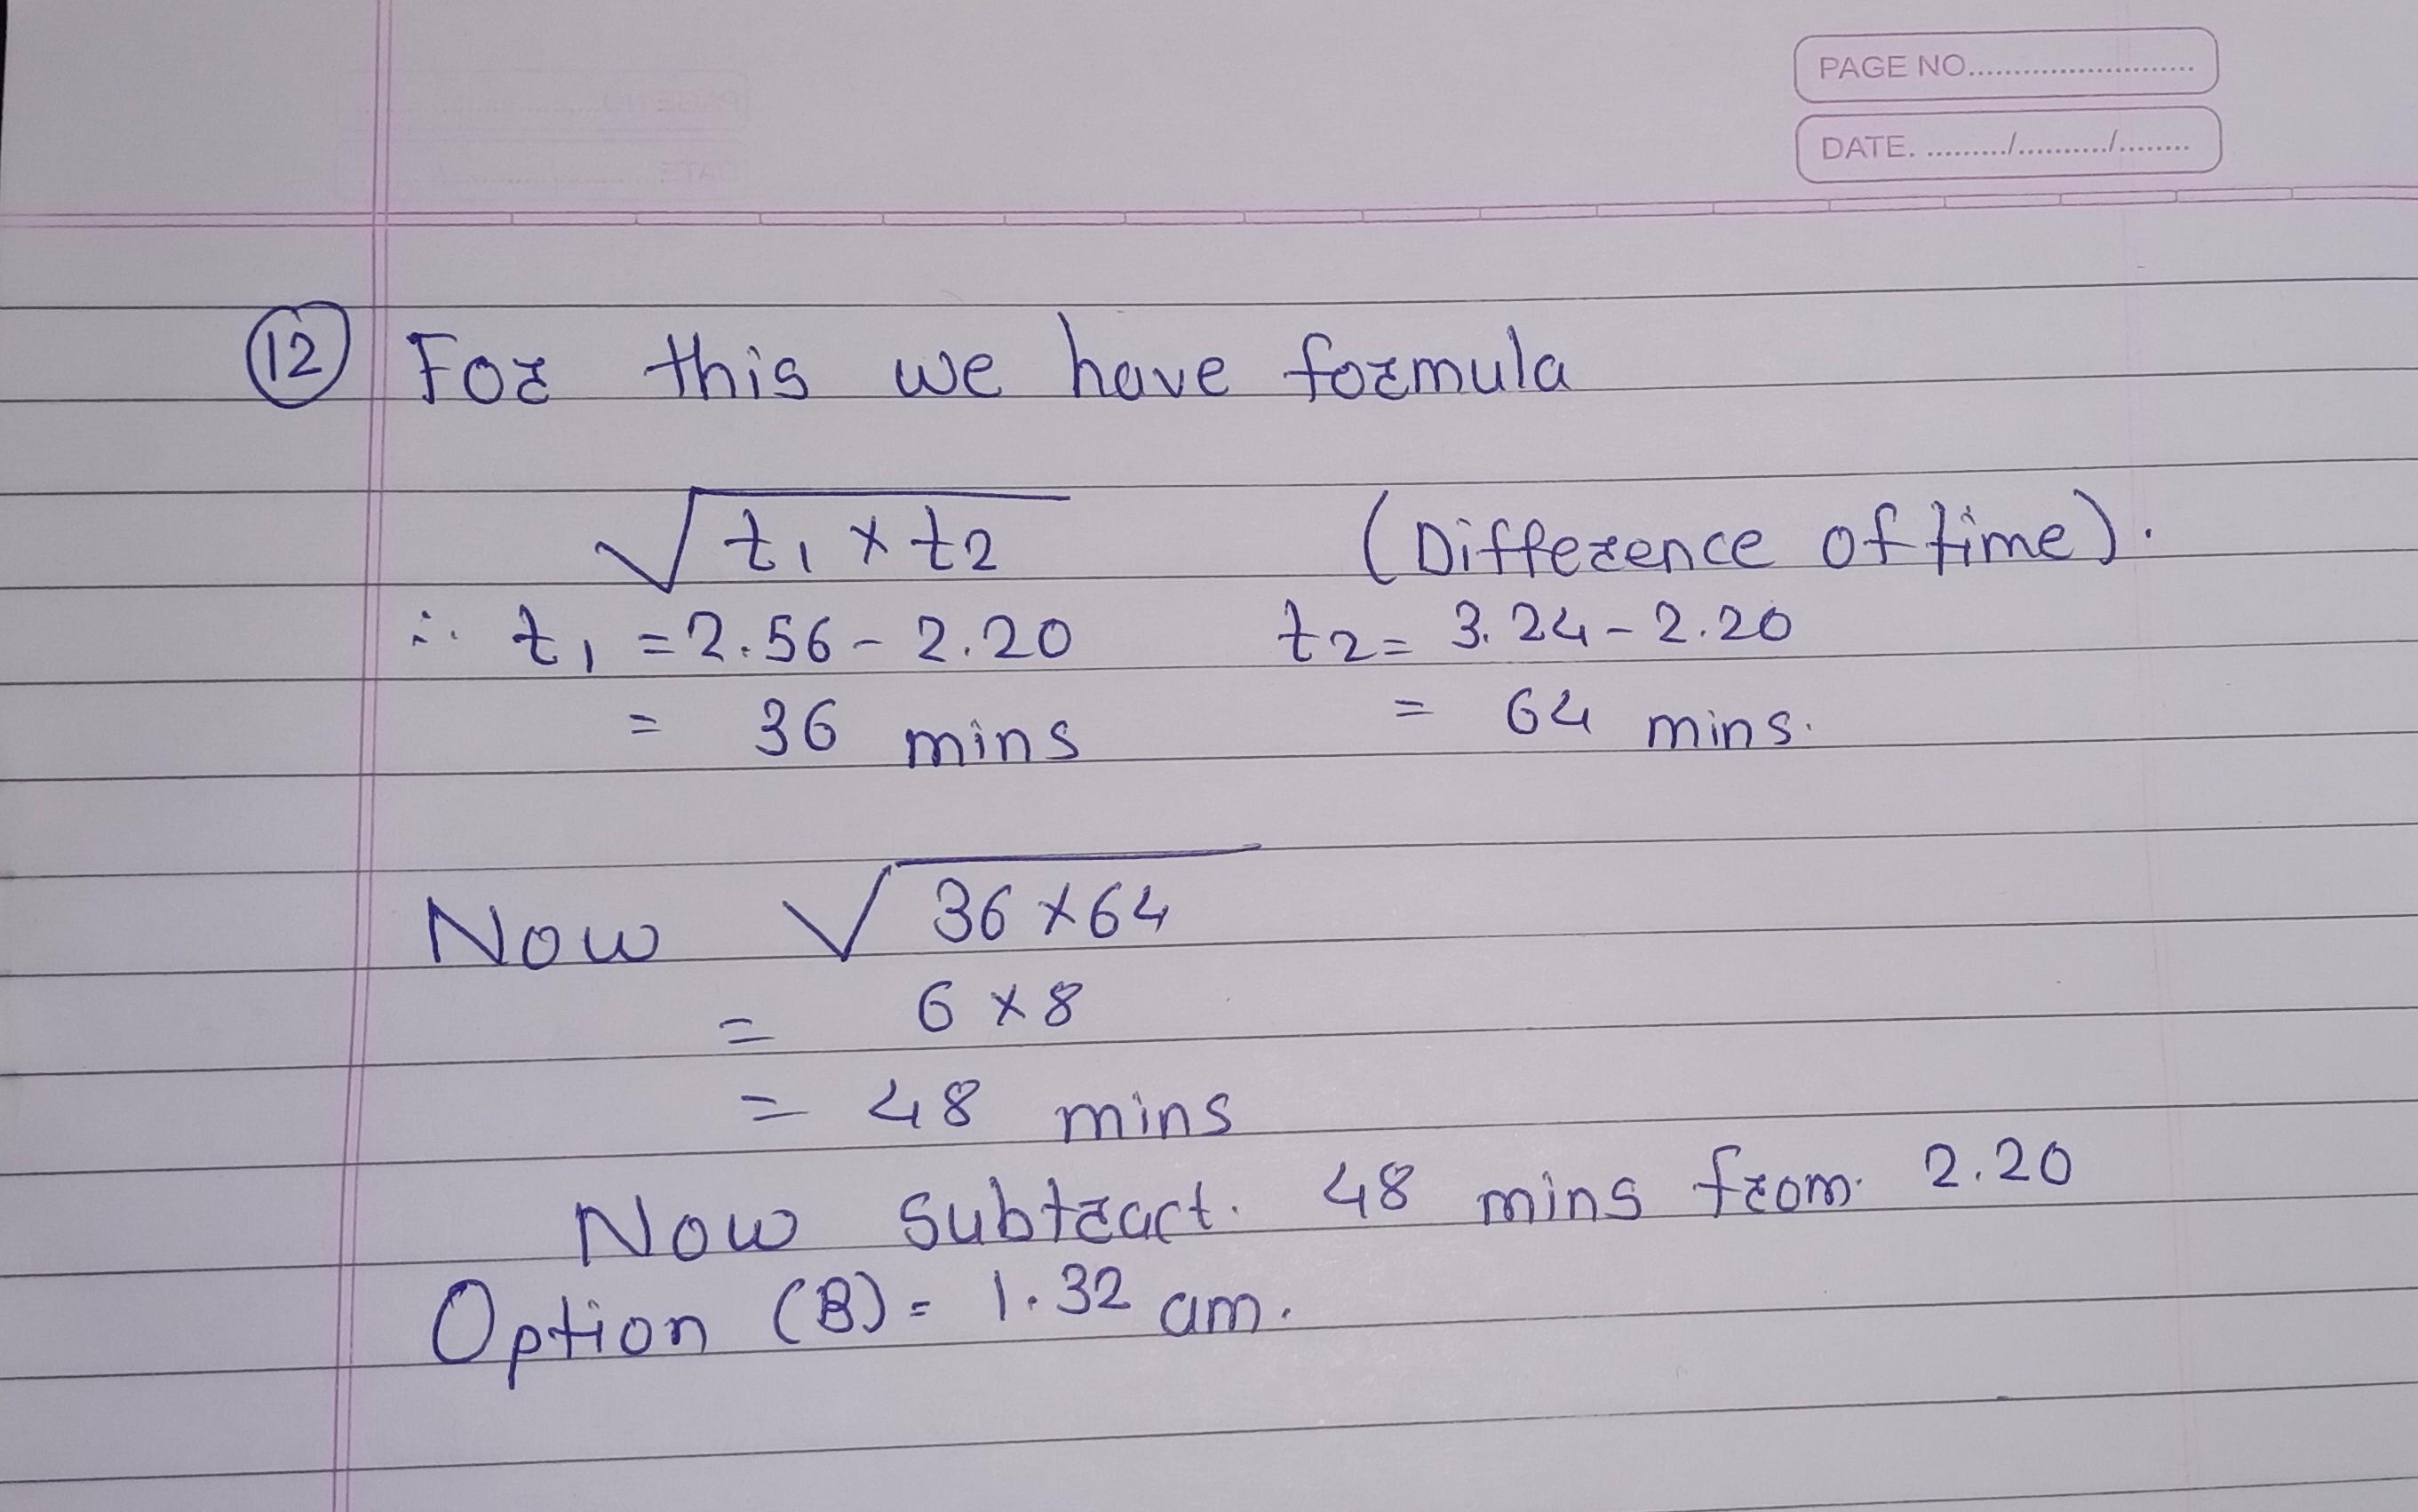 PAGE NO..........................
DATE. ........./.........../........
12 For this we have formula
√t1 × t2 (Difference of time).
∴ t1 = 2.56 - 2.20 t2 = 3.24 - 2.20
= 36 mins = 64 mins.
Now √36 × 64
= 6 × 8
= 48 mins
Now subtract. 48 mins from 2.20
Option (B) = 1.32 am.